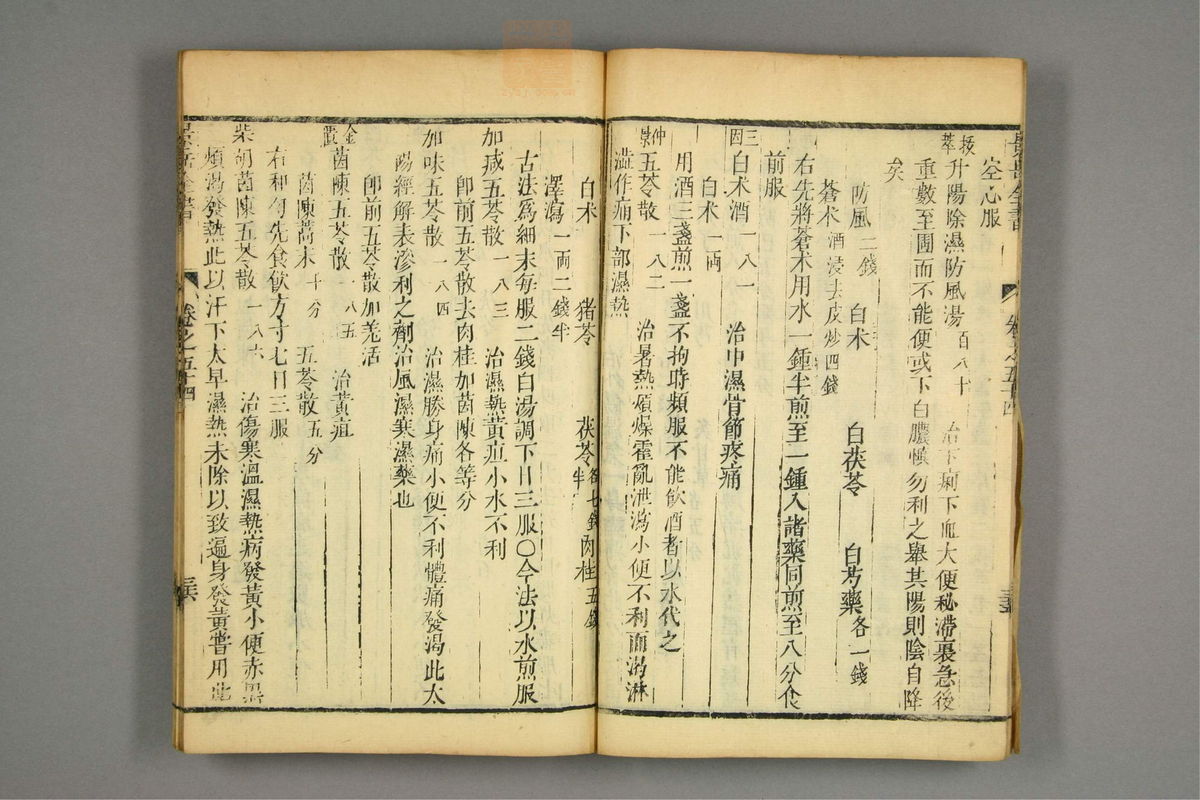 景岳全書 卷之五十四
空心服
拔萃升陽除濕防風湯 百八十 治下痢下血大便秘滯裏急後
重數至圊而不能便或下白膿慎勿利之舉其陽則陰自降
矣
防風二錢 白朮 白茯苓 白芍藥各一錢
蒼朮酒浸去皮炒四錢
右先將蒼朮用水一鍾半煎至一鍾入諸藥同煎至八分食
前服
三因白朮酒 一八一 治中濕骨節疼痛
白朮一兩
用酒三盞煎一盞不拘時頻服不能飲酒者以水代之
仲景五苓散 一八二 治暑熱煩燥霍亂泄瀉小便不利而渴淋
澁作痛下部濕熱
白朮 猪苓 茯苓各七錢半 肉桂五錢
澤瀉一兩二錢半
古法爲細末每服二錢白湯調下日三服○今法以水煎服
加減五苓散 一八三 治濕熱黃疸小水不利
卽前五苓散去肉桂加茵陳各等分
加味五苓散 一八四 治濕勝身痛小便不利體痛發渴此太
陽經解表滲利之劑治風濕寒濕藥也
卽前五苓散加羌活
金匱茵陳五苓散 一八五 治黃疸
茵陳蒿末十分 五苓散五分
右和勻先食飲方寸匕日三服
柴胡茵陳五苓散 一八六 治傷寒溫濕熱病發黃小便赤黑
煩渴發熱此以汗下太早濕熱未除以致遍身發黃嘗用此
景岳全書 卷之五十四